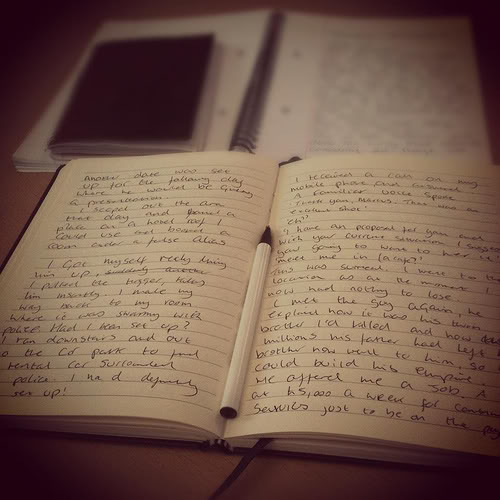 Another date was set
up for the following day
where he would be giving
a presentation.
I scoped out the area
that day and found a
place on a hotel roof I
could use and booked a
room under a false alias
I got myself ready
him up,
I pulled the trigger, killed
him instantly. I made my
way back to my room
where it was swarming with
police. Had I been set up?
I ran downstairs and out
to the car park to find
rental car surrounded
police. I had definitely
set up!
I received a call on my
mobile phone and answered
A familiar voice spoke.
"Thank you, Marcus. That was
excellent shot."
"Eh"
"I have an proposal for you
with your current
you going to want to hear it
meet me in
This was surreal. I went to
location as at the moment
now had nothing to lose.
I met the guy again, he
explained how it was his twin
brother I'd killed and how the
millions his father had left
brother now went to him, so
could build his empire.
He offered me a job. A
at £5,000 a week for
services just to be on the